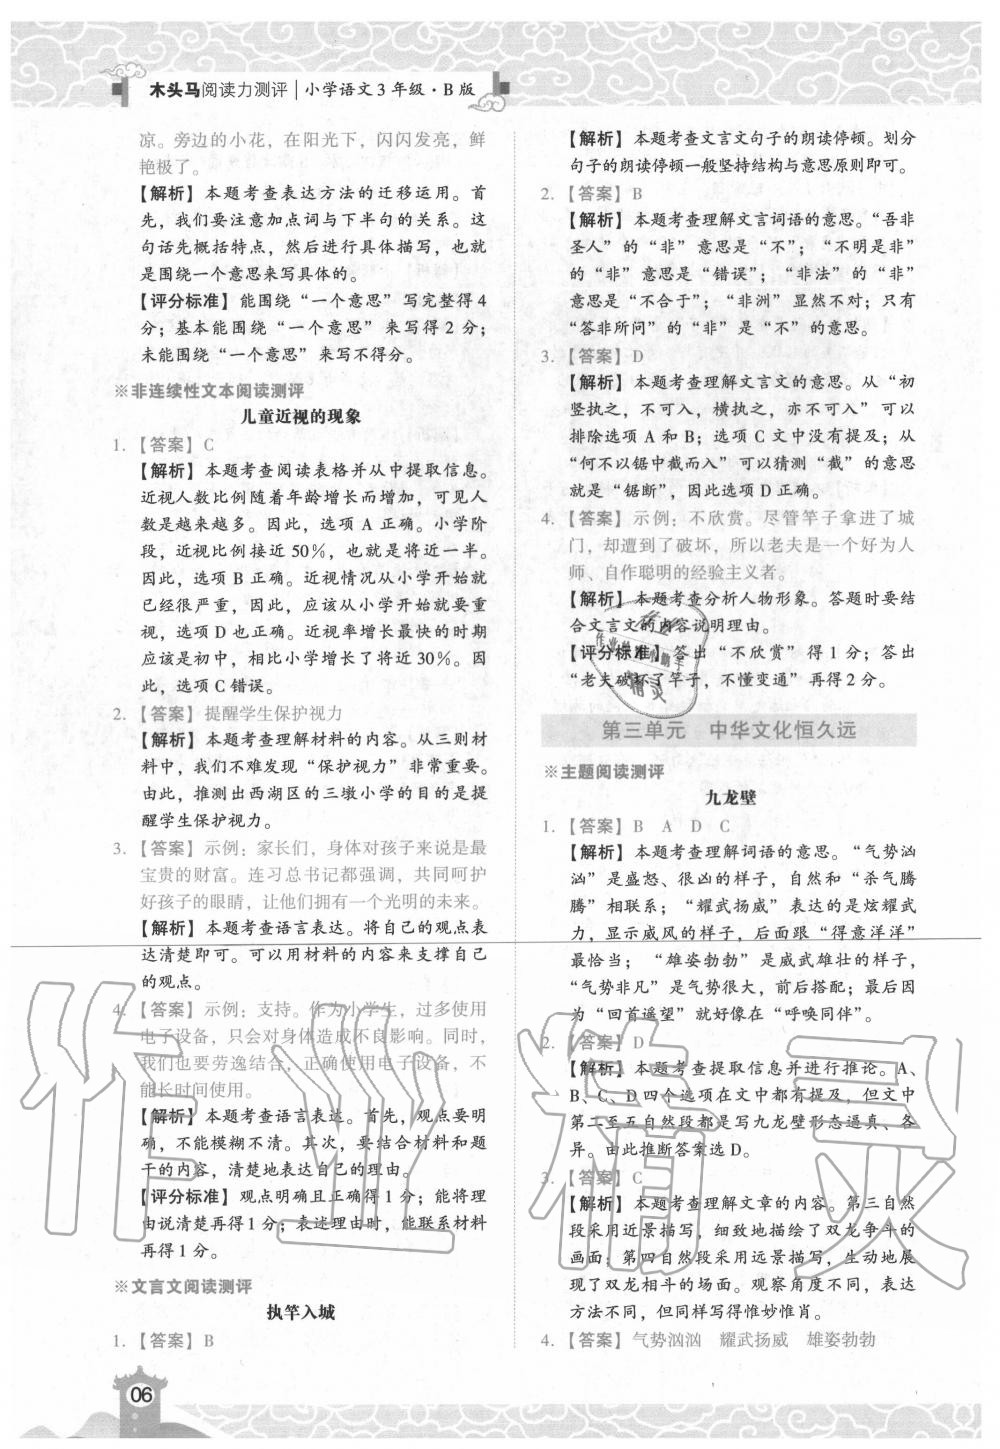 木头马阅读力测评|小学语文3年级·B版
凉。旁边的小花，在阳光下，闪闪发亮，鲜
艳极了。
【解析】本题考查表达方法的迁移运用。首
先，我们要注意加点词与下半句的关系。这
句话先概括特点，然后进行具体描写，也就
是围绕一个意思来写具体的。
【评分标准】能围绕“一个意思”写完整得4
分；基本能围绕“一个意思”来写得2分；
未能围绕“一个意思”来写不得分。
※非连续性文本阅读测评
儿童近视的现象
1.【答案】C
【解析】本题考查阅读表格并从中提取信息。
近视人数比例随着年龄增长而增加，可见人
数是越来越多。因此，选项A正确。小学阶
段，近视比例接近50%，也就是将近一半。
因此，选项B正确。近视情况从小学开始就
已经很严重，因此，应该从小学开始就要重
视，选项D也正确。近视率增长最快的时期
应该是初中，相比小学增长了将近30%。因
此，选项C错误。
2.【答案】提醒学生保护视力
【解析】本题考查理解材料的内容。从三则材
料中，我们不难发现“保护视力”非常重要。
由此，推测出西湖区的三墩小学的目的是提
醒学生保护视力。
3.【答案】示例：家长们，身体对孩子来说是最
宝贵的财富。连习总书记都强调，共同呵护
好孩子的眼睛，让他们拥有一个光明的未来。
【解析】本题考查语言表达。将自己的观点表
达清楚即可。可以用材料的内容来支撑自己
的观点。
4.【答案】示例：支持。作为小学生，过多使用
电子设备，只会对身体造成不良影响。同时，
我们也要劳逸结合，正确使用电子设备，不
能长时间使用。
【解析】本题考查语言表达。首先，观点要明
确，不能模糊不清。其次，要结合材料和题
干的内容，清楚地表达自己的理由。
【评分标准】观点明确且正确得1分；能将理
由说清楚再得1分；表述理由时，能联系材料
再得1分。
※文言文阅读测评
执竿入城
1.【答案】B
【解析】本题考查文言文句子的朗读停顿。划分
句子的朗读停顿一般坚持结构与意思原则即可。
2.【答案】B
【解析】本题考查理解文言词语的意思。“吾非
圣人”的“非”意思是“不”；“不明是非”
的“非”意思是“错误”；“非法”的“非”
意思是“不合于”；“非洲”显然不对；只有
“答非所问”的“非”是“不”的意思。
3.【答案】D
【解析】本题考查理解文言文的意思。从“初
竖执之，不可入，横执之，亦不可入”可以
排除选项A和B；选项C文中没有提及；从
“何不以锯中截而入”可以猜测“截”的意思
就是“锯断”，因此选项D正确。
4.【答案】示例：不欣赏。尽管竿子拿进了城
门，却遭到了破坏，所以老夫是一个好为人
师、自作聪明的经验主义者。
【解析】本题考查分析人物形象。答题时要结
合文言文的内容说明理由。
【评分标准】答出“不欣赏”得1分；答出
“老夫破坏了竿子，不懂变通”再得2分。
第三单元　中华文化恒久远
※主题阅读测评
九龙壁
1.【答案】B　A　D　C
【解析】本题考查理解词语的意思。“气势汹
汹”是盛怒、很凶的样子，自然和“杀气腾
腾”相联系；“耀武扬威”表达的是炫耀武
力，显示威风的样子，后面跟“得意洋洋”
最恰当；“雄姿勃勃”是威武雄壮的样子，
“气势非凡”是气势很大，前后搭配；最后因
为“回首遥望”就好像在“呼唤同伴”。
2.【答案】D
【解析】本题考查提取信息并进行推论。A、
B、C、D四个选项在文中都有提及，但文中
第二至五自然段都是写九龙壁形态逼真、各
异。由此推断答案选D。
3.【答案】C
【解析】本题考查理解文章的内容。第三自然
段采用近景描写，细致地描绘了双龙争斗的
画面；第四自然段采用远景描写，生动地展
现了双龙相斗的场面。观察角度不同，表达
方法不同，但同样写得惟妙惟肖。
4.【答案】气势汹汹　耀武扬威　雄姿勃勃
06
作业精灵